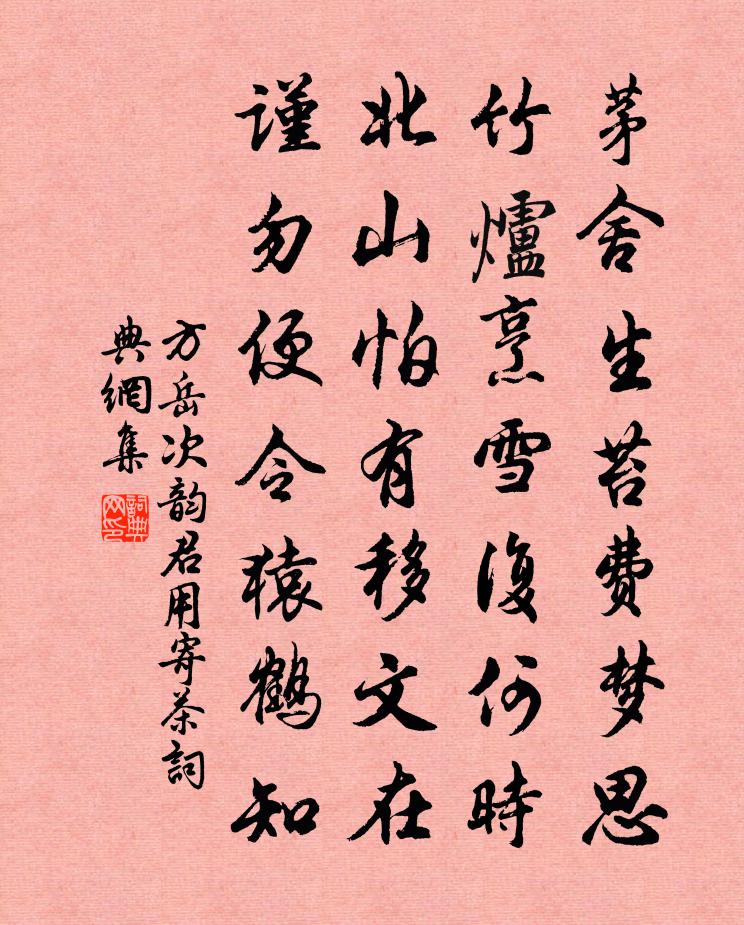 茅舍生苔费梦思
竹爐烹雪復何時
北山怕有移文在
謹勿便令猿鶴知
方岳次韵君用寄茶詞
典網集
詞典网印